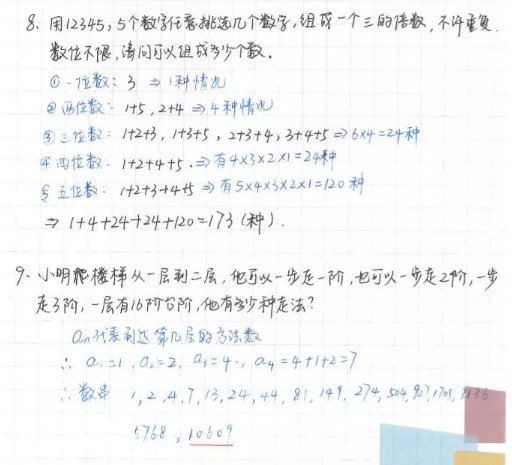 8、用12345，5个数字任意挑选几个数字，组成一个三的倍数，不许重复.
数位不限，请问可以组成多少个数。
①一位数：3 ⇒ 1种情况
②两位数：1+5，2+4 ⇒ 4种情况
③三位数：1+2+3，1+3+5，2+3+4，3+4+5 ⇒ 6×4=24种
④四位数：1+2+4+5．⇒ 有4×3×2×1=24种
⑤五位数：1+2+3+4+5 ⇒ 有5×4×3×2×1=120种
⇒ 1+4+24+24+120=173（种）.
9、小明爬楼梯从一层到二层，他可以一步走一阶，也可以一步走2阶，一步
走3阶，一层有16阶台阶，他有多少种走法？
an代表到达第几层的方法数
∴ a₁=1，a₂=2，a₃=4，a₄=4+1+2=7
∴ 数串 1，2，4，7，13，24，44，81，149，274，504，927，1705，3136
5768，10609